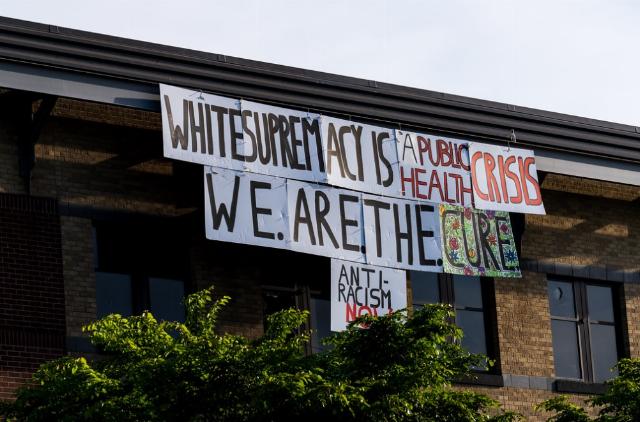 WHITE SUPREMACY IS A PUBLIC HEALTH CRISIS
WE.ARE.THE.CURE
ANTI-
RACISM
NOW